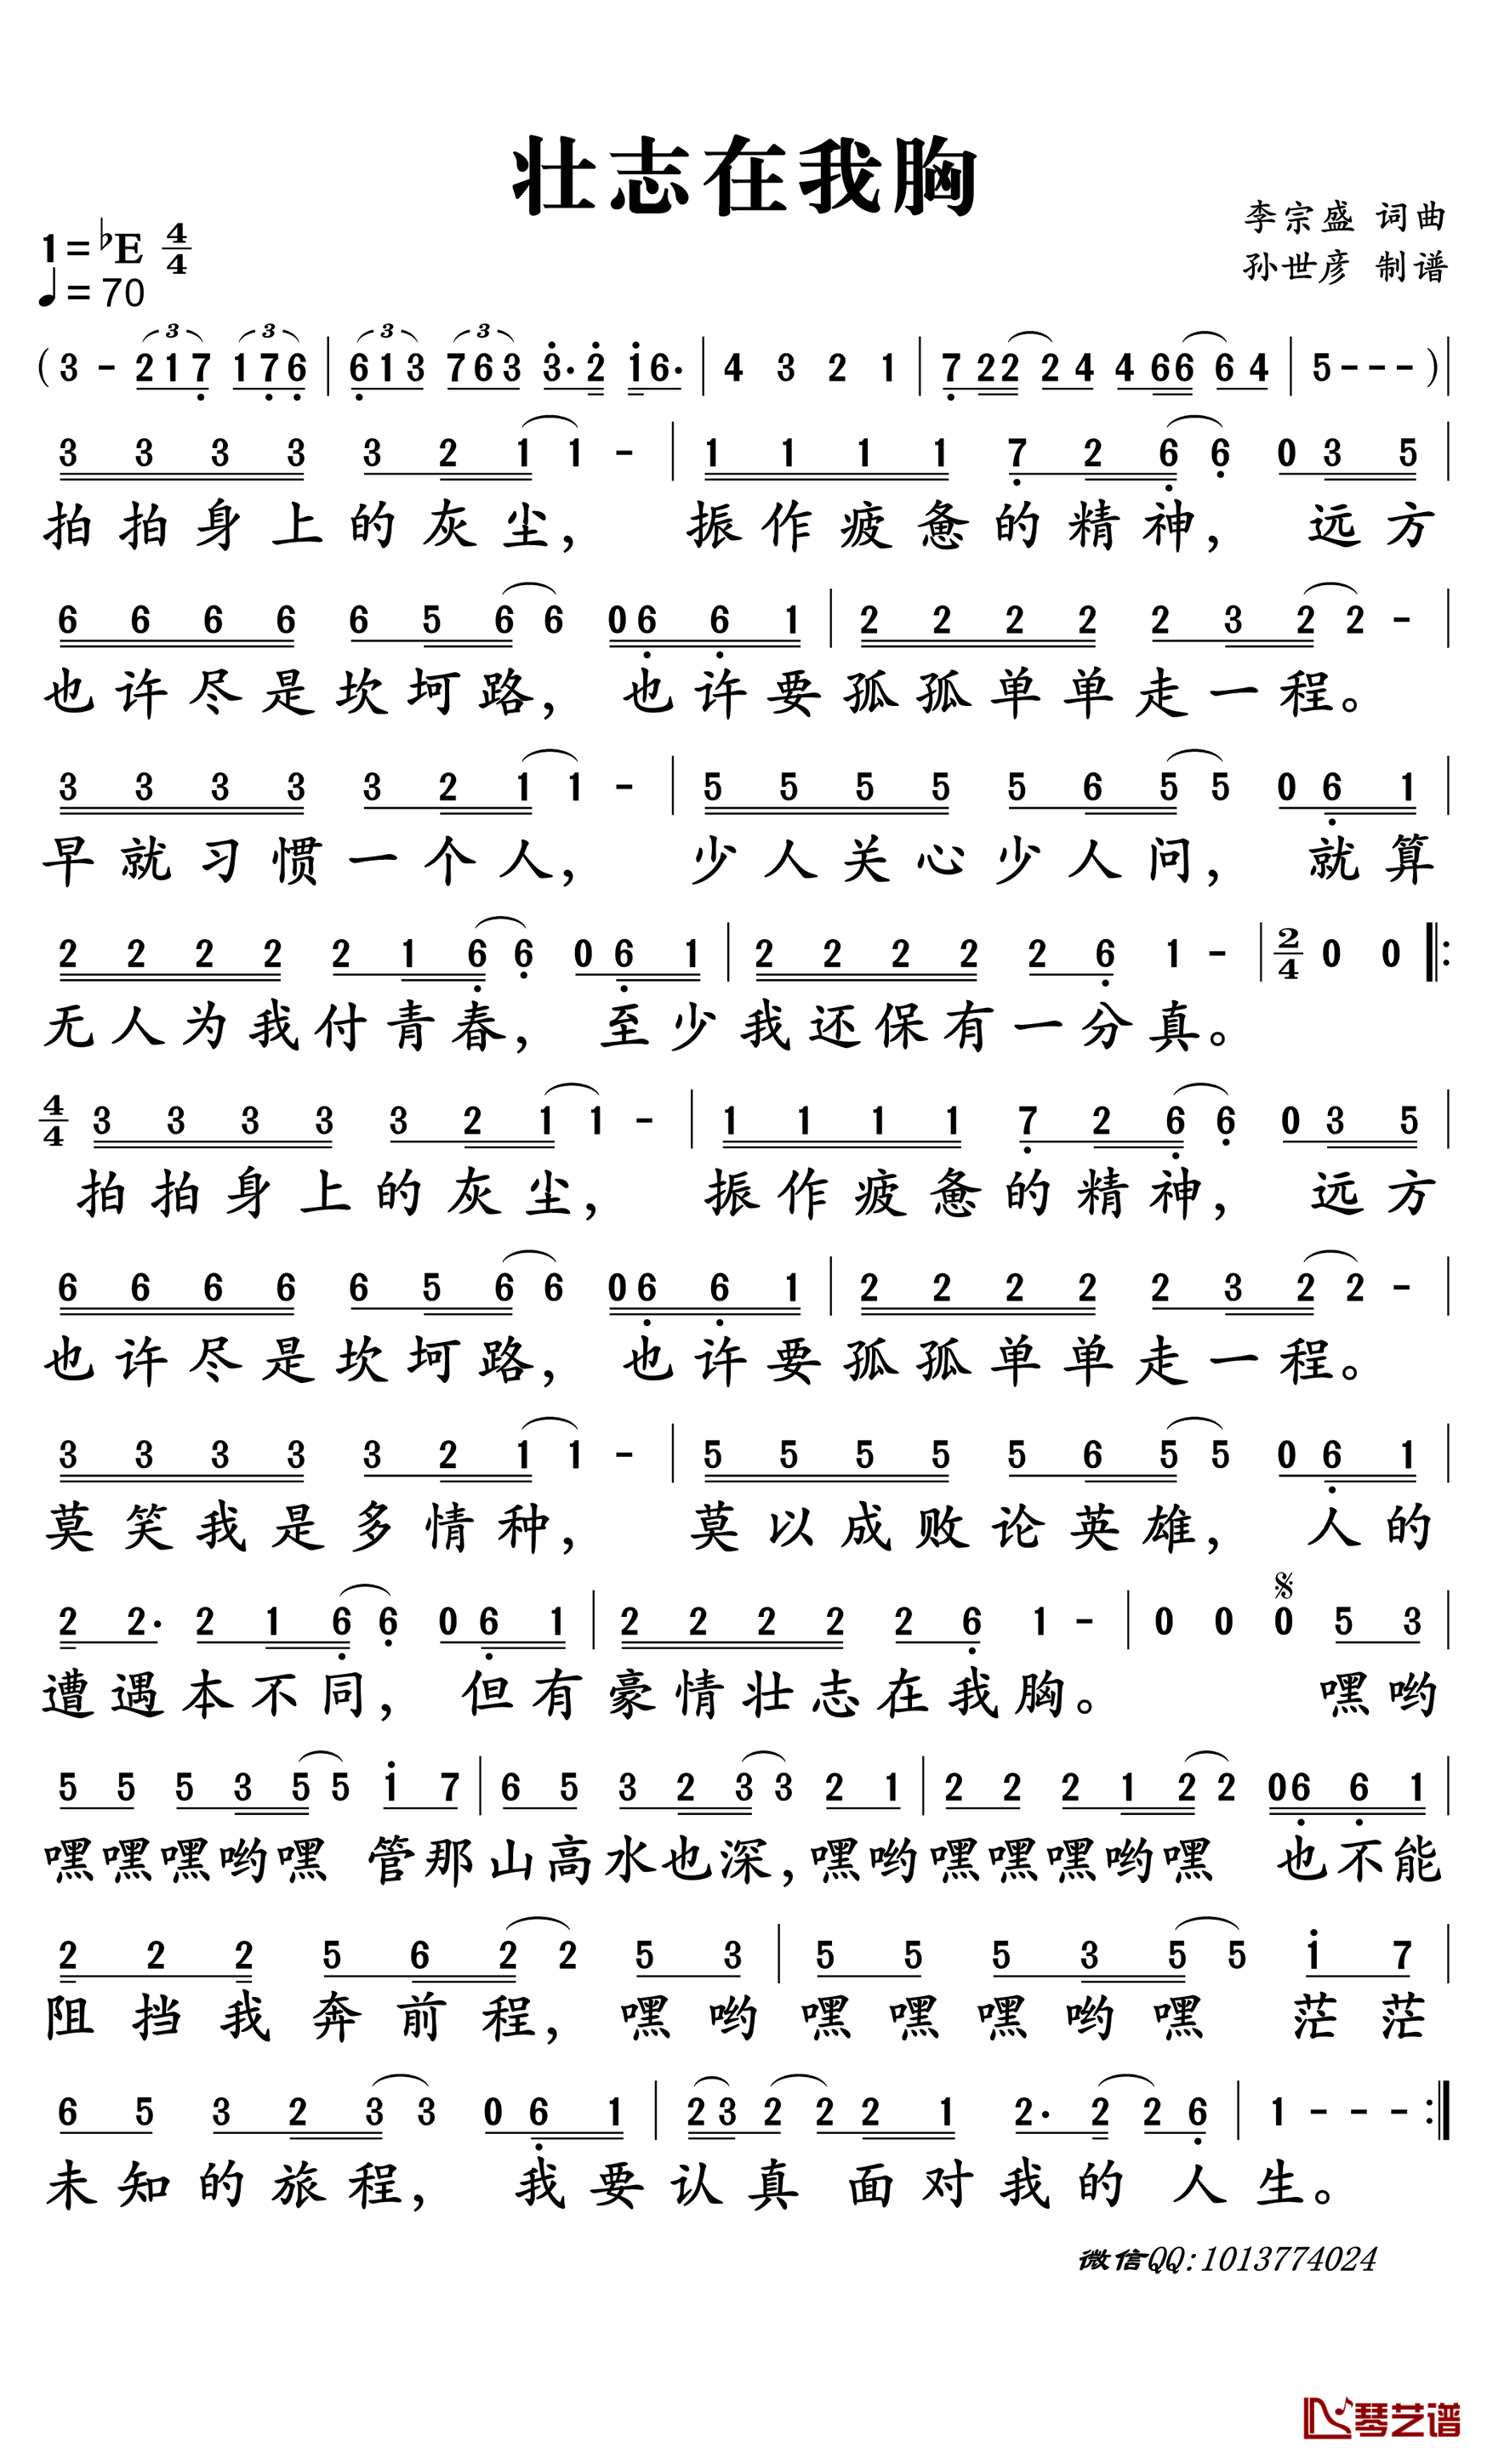 壮志在我胸
李宗盛 词曲
孙世彦 制谱
1=♭E 4/4
♩= 70
( 3 - 2 1 7 1 7 6 | 6 1 3 7 6 3 3· 2 1 6· | 4 3 2 1 | 7 2 2 2 4 4 6 6 6 4 | 5 - - - ) |
3 3 3 3 3 2 1 1 - | 1 1 1 1 7 2 6 6 0 3 5 |
拍拍身上的灰尘， 振作疲惫的精神， 远方
6 6 6 6 6 5 6 6 0 6 6 1 | 2 2 2 2 2 3 2 2 - |
也许尽是坎坷路， 也许要孤孤单单走一程。
3 3 3 3 3 2 1 1 - | 5 5 5 5 5 6 5 5 0 6 1 |
早就习惯一个人， 少人关心少人问， 就算
2 2 2 2 2 1 6 6 0 6 1 | 2 2 2 2 2 6 1 - | 2/4 0 0 |:
无人为我付青春， 至少我还保有一分真。
4/4 3 3 3 3 3 2 1 1 - | 1 1 1 1 7 2 6 6 0 3 5 |
拍拍身上的灰尘， 振作疲惫的精神， 远方
6 6 6 6 6 5 6 6 0 6 6 1 | 2 2 2 2 2 3 2 2 - |
也许尽是坎坷路， 也许要孤孤单单走一程。
3 3 3 3 3 2 1 1 - | 5 5 5 5 5 6 5 5 0 6 1 |
莫笑我是多情种， 莫以成败论英雄， 人的
2 2· 2 1 6 6 0 6 1 | 2 2 2 2 2 6 1 - | 0 0 0 5 3 |
遭遇本不同， 但有豪情壮志在我胸。 嘿哟
5 5 5 3 5 5 1 7 | 6 5 3 2 3 3 2 1 | 2 2 2 1 2 2 0 6 6 1 |
嘿嘿嘿哟嘿 管那山高水也深，嘿哟嘿嘿嘿哟嘿 也不能
2 2 2 5 6 2 2 5 3 | 5 5 5 3 5 5 1 7 |
阻挡我奔前程， 嘿哟嘿嘿嘿哟嘿 茫茫
6 5 3 2 3 3 0 6 1 | 2 3 2 2 2 1 2· 2 2 6 | 1 - - - :|
未知的旅程， 我要认真面对我的人生。
微信QQ:1013774024
琴艺谱